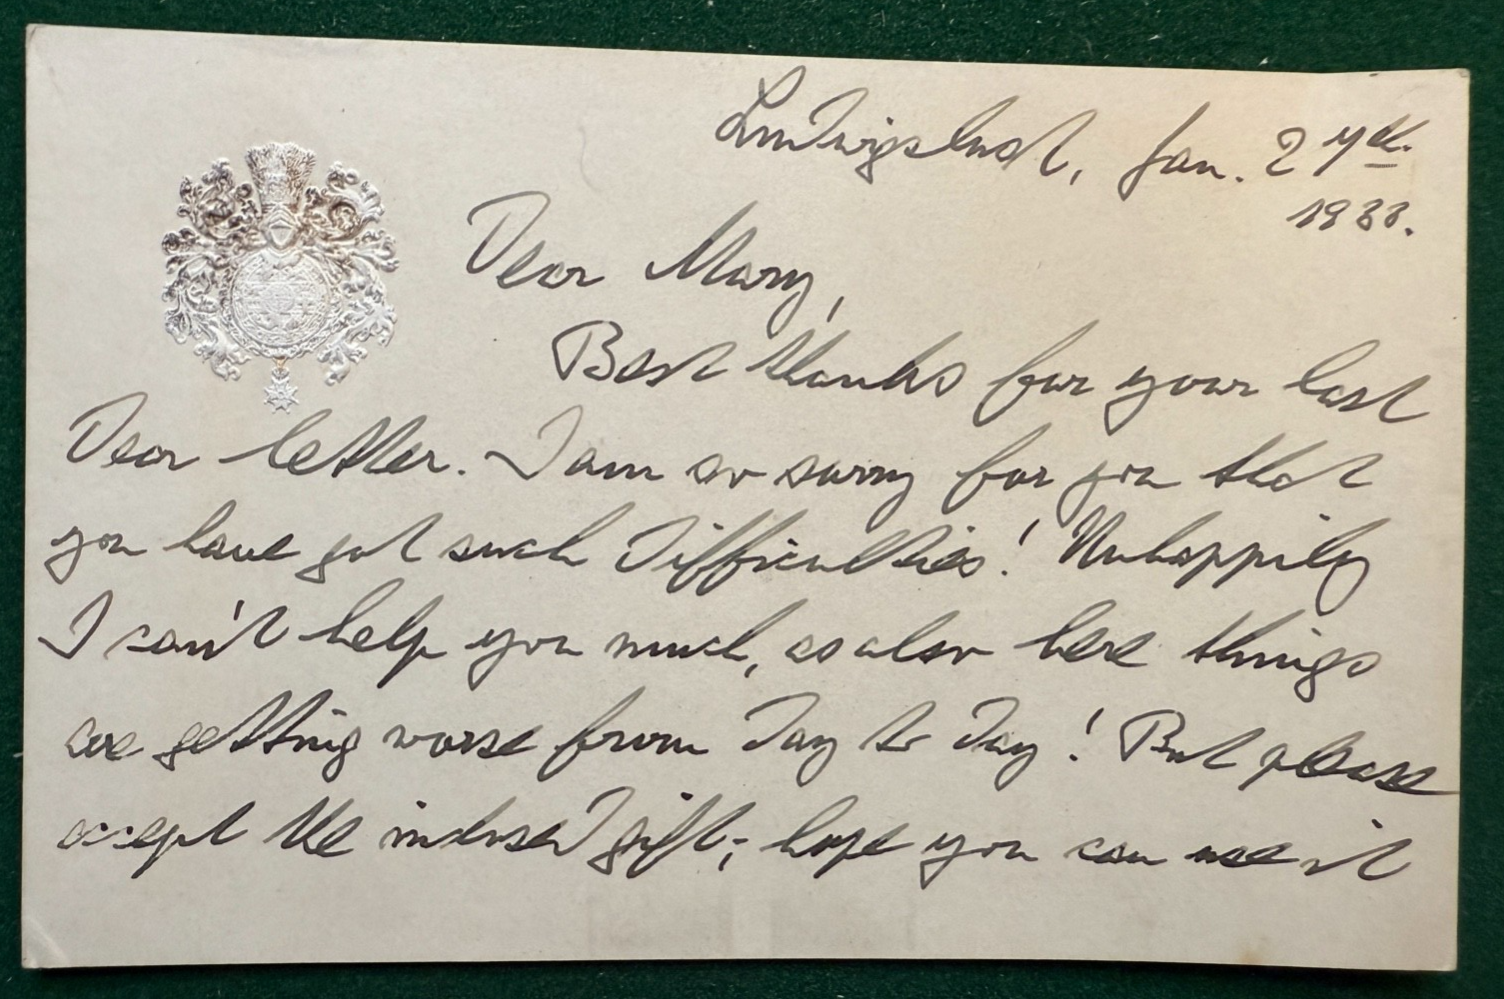 Ludwigslust, Jan. 2
1933.
Dear Mary,
Best thanks for your last
dear letter. I am so sorry for you that
you have got such difficulties! Unhappily
I can't help you much, as also here things
are getting worse from day to day! But please
accept the inclosed gift; hope you can use it